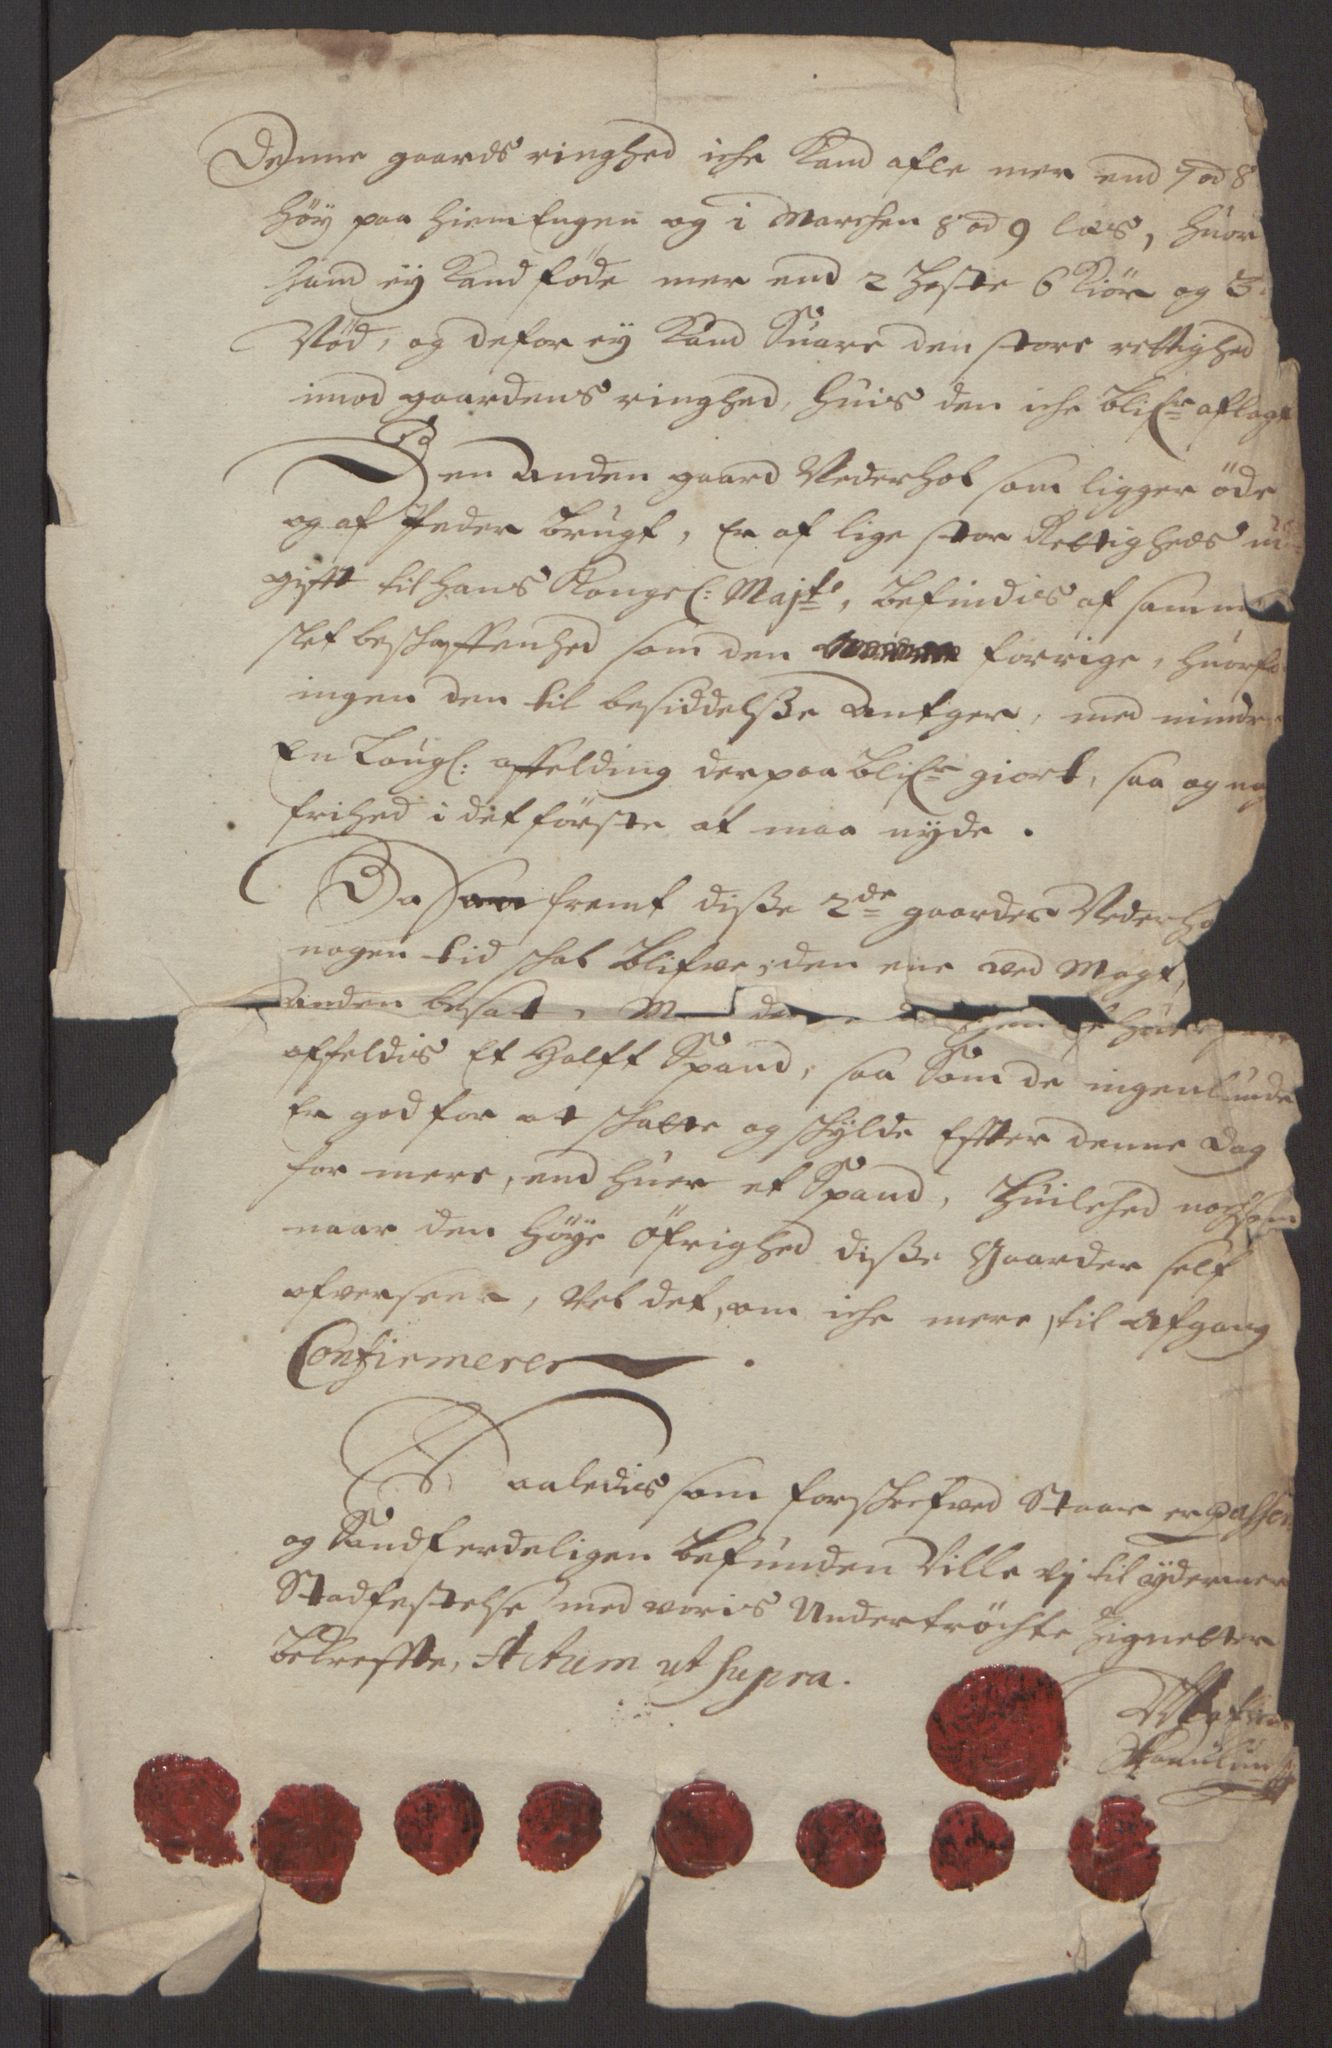 Denne gaards ringhed iche Kand afle mer end 7 od 8
höy paa hiem Engen og i Marchen 8 od 9 læs, huor
hand ey Kand föde mer end 2 heste 6 Kiör og 3
Nöd, og defor ey Kand Suare den store rettighed
imod gaardens ringhed, huis den iche blifr aflagt
Den Anden gaard Vederhol som ligger öde
og af Peder brugt, Er af lige stor Rettigheds
gifft til hans Kongel: Majts, befindis af samme
slet beschaffenhed som den forrige, huorfo
ingen den til besiddelsße Antger, med mindre
En Laugl: affelding derpaa blifr giort, saa og
frihed i det förste at maa nyde.
Da saa fremt disße 2de gaarder Vederho
nogen tid schal blifve, den ene ved Magt,
Anden besat,
affeldis Et halft Spand, saa Som de ingenlunde
Er god for at schatte og schylde Effter denne dag
for mere, end huer et Spand, huilched nochsom
naar den höye Öfrighed disße Gaarder self
ofverseer, Vel det, om iche mere, til Afgang
Confirmerer
Saaledis som forschrefved Staar er passer
og Sandferdeligen befunden Ville vj til ydermer
Stadfestelse med voris Undertröchte Zignetter
bekreffte, Actum ut supra.